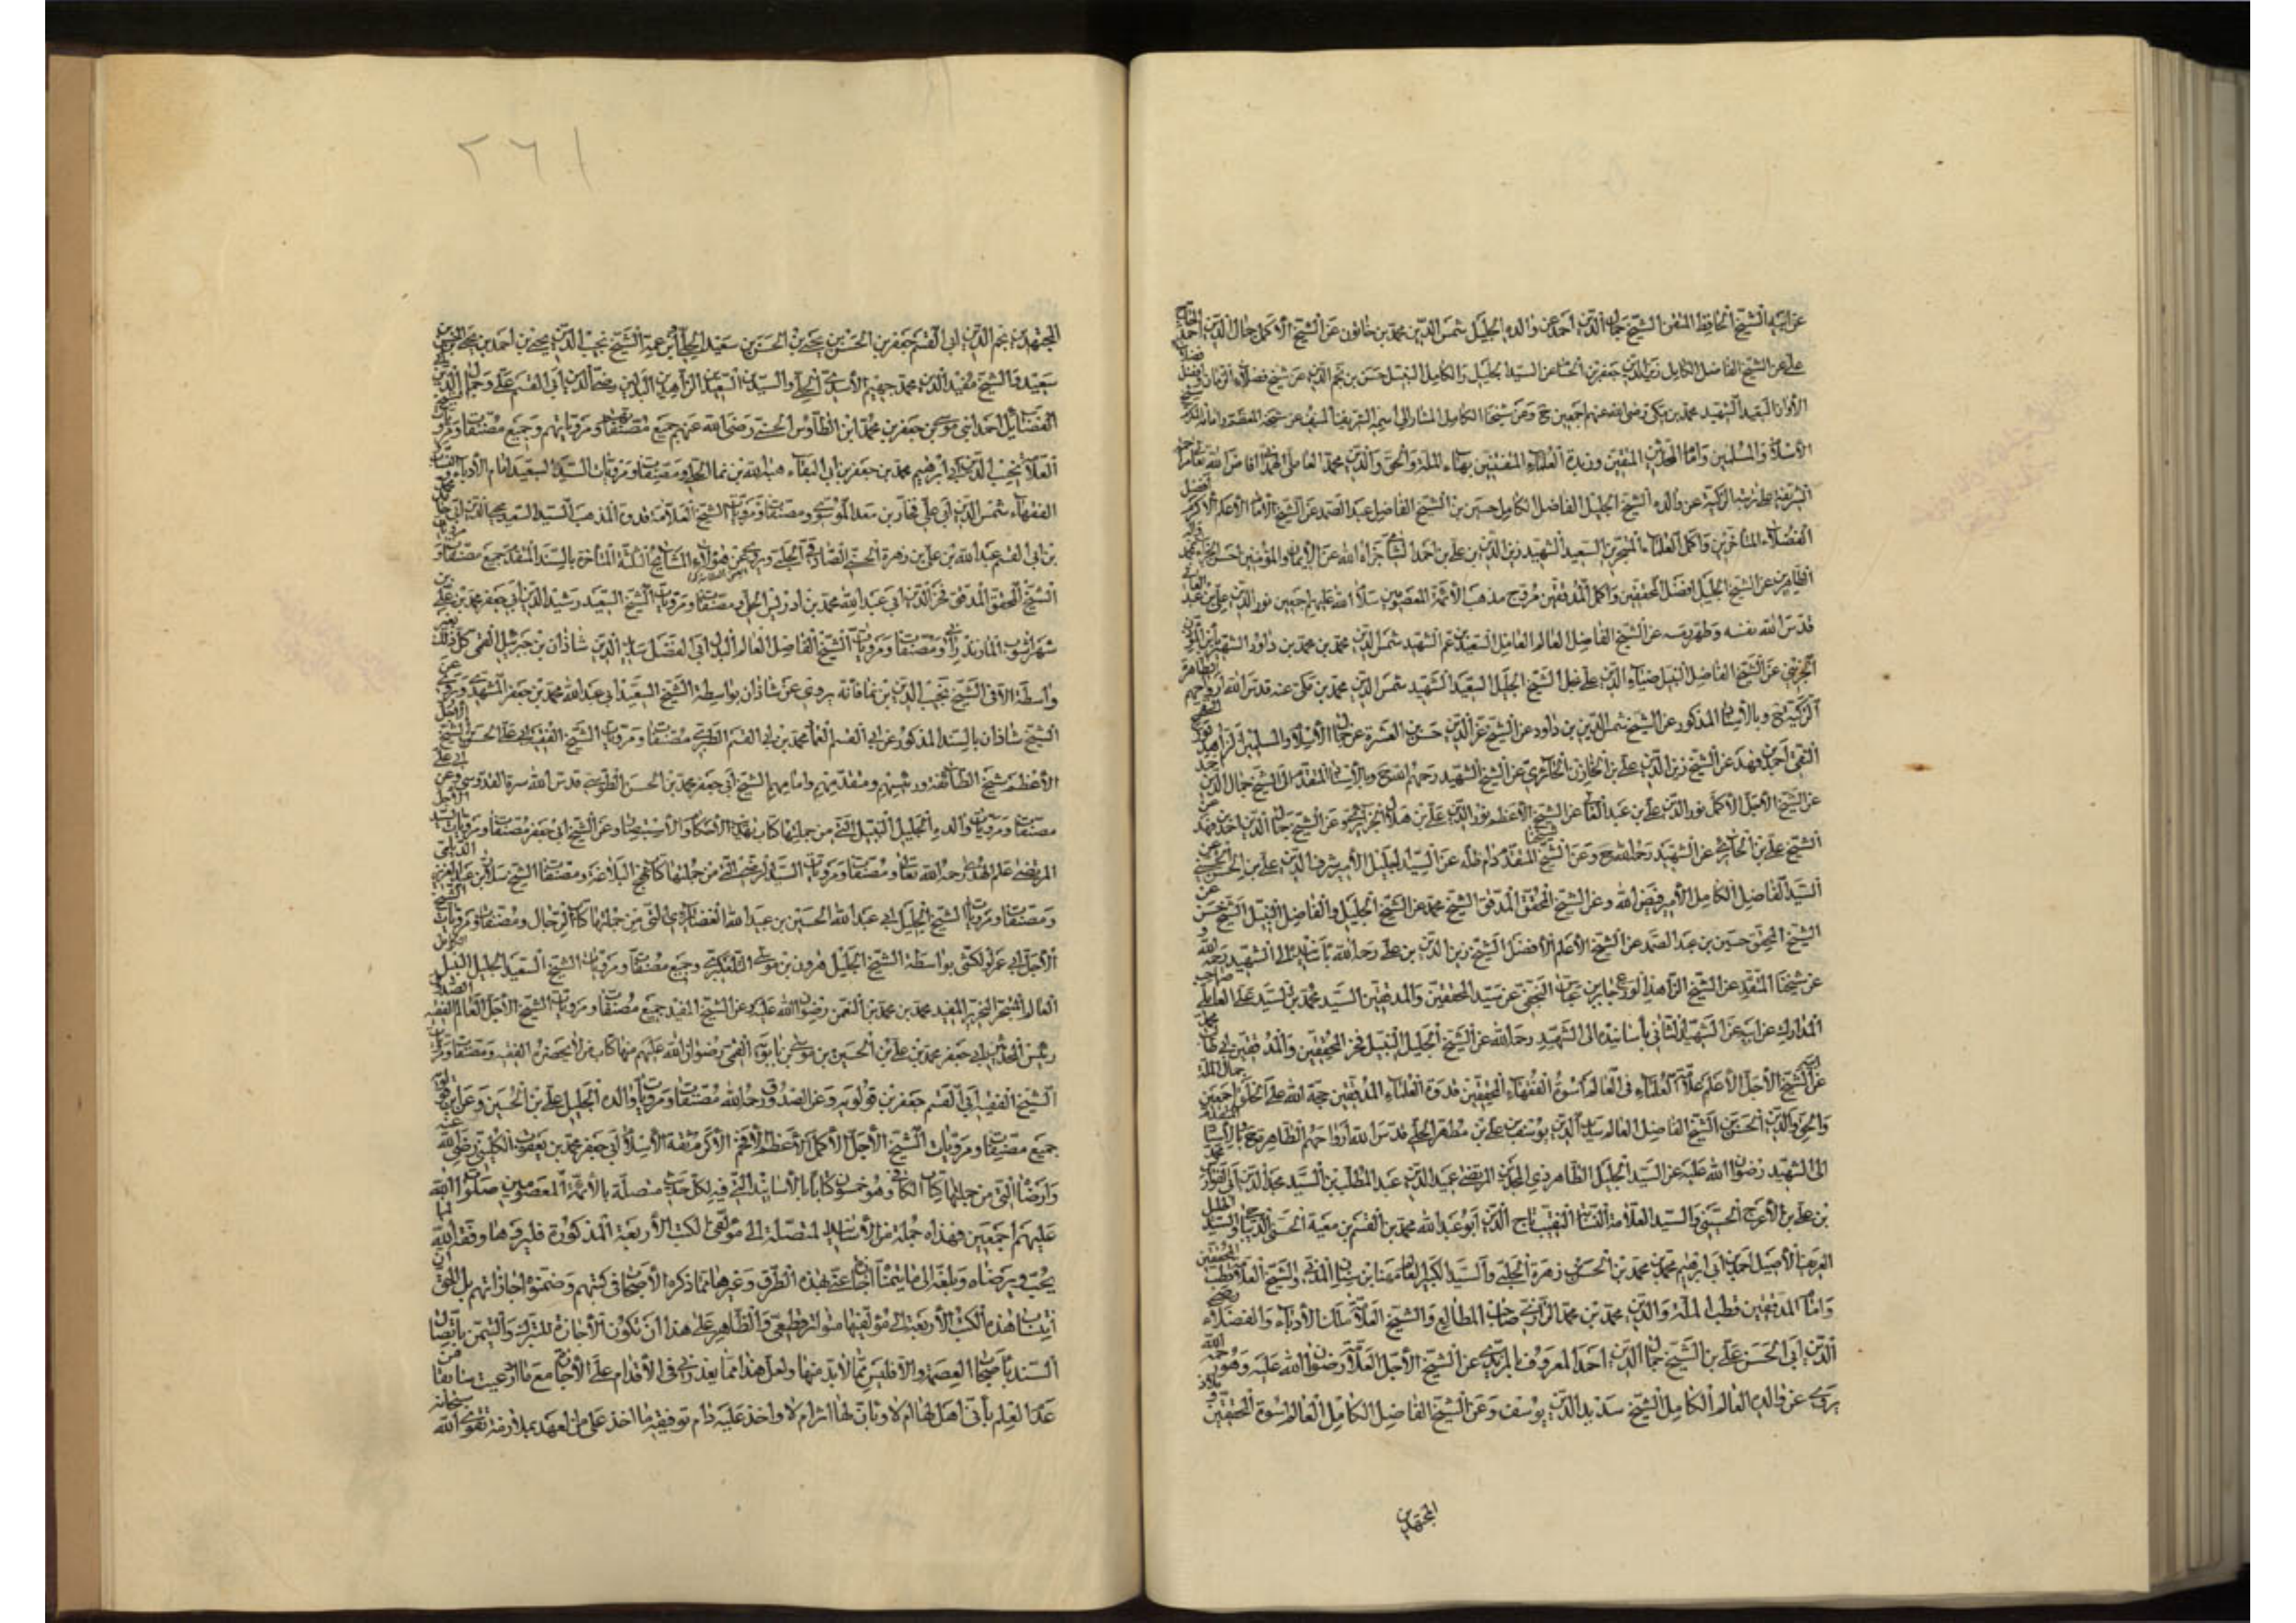 عن ابيه الشيخ الحافظ المتقن الشيخ جمال الدين احمد عن والده الجليل شمس الدين محمد بن خاتون عن الشيخ الأكمل جمال الدين احمد
على عن الشيخ الفاضل الكامل زين الدين جعفر بن الحسام عن السيد الجليل والكامل النبيل حسن بن نجم الدين عن شيخ فضلاء الزمان
الأوان السعيد الشهيد محمد بن مكي رضي الله عنهم اجمعين ح وعن شيخنا الكامل المشار الى اسمه الشريف
الأسلام والمسلمين وامام المحدثين وزبدة العلماء بهاء الملة والحق والدين محمد العاملي افاض الله
الشريفة عن والده الشيخ الجليل الفاضل الكامل حسين بن الشيخ الفاضل عبد الصمد عن الشيخ الأمام الأعلم الأكرم افضل
الفضلاء المتأخرين واكمل العلماء المتبحرين السعيد الشهيد زين الدين بن علي بن احمد الشامي جزاه الله عن الأيمان والمؤمنين
عن الشيخ الجليل افضل المحققين واكمل المدققين مروج مذهب الأئمة المعصومين سلام الله عليهم اجمعين نور الدين علي بن عبد العالي
قدس الله نفسه وطهر رمسه عن الشيخ الفاضل العالم العامل السعيد ابن عم الشهيد شمس الدين محمد بن محمد بن داود الشهير بابن المؤذن
الجزيني عن الشيخ الفاضل النبيل ضياء الدين علي نجل الشيخ الجليل السعيد الشهيد شمس الدين محمد بن مكي عنه قدس الله ارواحهم الطاهرة
الزكية ح وبالأسناد المذكور عن الشيخ شمس الدين بن داود عن الشيخ عز الدين حسن بن العشرة عن جمال الأسلام والمسلمين الزاهد
التقي احمد بن فهد عن الشيخ زين الدين علي بن الخازن الحائري عن الشيخ الشهيد رحمهم الله ح وبالأسناد المتقدم الى الشيخ جمال الدين احمد
عن الشيخ الأجل الأكمل نور الدين علي بن عبد العالي عن الشيخ الأعظم نور الدين علي بن هلال الجزايري عن الشيخ جمال الدين احمد بن فهد عن
الشيخ علي بن الخازن عن الشهيد رحمه الله ح وعن الشيخ المتقدم دام ظله عن السيد الجليل الأمير شرف الدين علي بن الحسني عن
السيد الفاضل الكامل الأمير فيض الله وعن الشيخ المحقق المدقق الشيخ محمد عن الشيخ الجليل والفاضل النبيل الشيخ حسن عن
الشيخ المحقق حسين بن عبد الصمد عن الشيخ الأعلم الأفضل الشيخ زين الدين بن علي رحمه الله بأسانيده الى الشهيد رحمه الله و
عن شيخنا المتقدم عن الشيخ الزاهد الورع جابر بن عباس النجفي عن سيد المحققين والمدققين السيد محمد بن السيد علي العاملي صاحب
المدارك عن ابيه عن الشهيد الثاني بأسانيده الى الشهيد رحمه الله عن الشيخ الجليل النبيل فخر المحققين والمدققين ابي طالب محمد
عن الشيخ الأجل الأعلم علامة العلماء في العالم اسوة الفقهاء المحققين قدوة العلماء المدققين حجة الله على الخلق اجمعين جمال الملة
والحق والدين الحسن بن الشيخ الفاضل العالم سديد الدين يوسف بن علي بن مطهر الحلي قدس الله ارواحهم الطاهرة ح وبالأسناد المتقدم
الى الشهيد رضوان الله عليه عن السيد الجليل الطاهر ذي المجدين المرتضى عميد الدين عبد المطلب بن السيد مجد الدين ابي الفوارس محمد
بن علي بن الأعرج الحسيني والسيد العلامة النسابة النقيب تاج الدين ابو عبد الله محمد بن القسم بن معية الحسني الديباجي والسيد الجليل
العريف الأصيل احمد بن ابي ابراهيم محمد بن محمد بن الحسن بن زهرة الحلبي والسيد الكبير العالم مهنا بن سنان المدني والشيخ العلامة قطب المحققين
وامام المدققين قطب الملة والدين محمد بن محمد الرازي صاحب المطالع والشيخ العلامة ملك الأدباء والفضلاء رضي
الدين ابي الحسن علي بن الشيخ جمال الدين احمد المعروف بالمزيدي عن الشيخ الأجل العلامة رضوان الله عليه وهو رحمه الله
يروي عن والده العالم الكامل الشيخ سديد الدين يوسف وعن الشيخ الفاضل الكامل العالم اسوة المحققين
المجتهدين
٢٦١
المجتهدين نجم الدين ابي القسم جعفر بن الحسن بن يحيى بن الحسن بن سعيد الحلي وابن عمه الشيخ نجيب الدين يحيى بن احمد بن يحيى الحسن بن
سعيد والشيخ مفيد الدين محمد جهيم الأسدي الحلي والسيدين السعيدين الزاهدين البدلين رضي الدين ابي القسم علي وجمال الدين ابي
الفضايل احمد ابني موسى بن جعفر بن محمد ابن الطاوس الحسني رضي الله عنهم جميع مصنفاتهم ومروياتهم وجميع مصنفات ومرويات الشيخ
العلامة نجيب الدين ابي ابراهيم محمد بن جعفر بن ابي البقاء هبة الله بن نما الحلي ومصنفات ومرويات السيد السعيد امام الأدباء
الفقهاء شمس الدين ابي علي فخار بن معد الموسوي ومصنفات ومرويات الشيخ العلامة قدوة المذهب السيد السعيد محيي الدين ابي حامد محمد
بن ابي القسم عبد الله بن علي بن زهرة الحسني الصادقي الحلبي ويروي عن هؤلاء المشايخ الثلثة المتأخرة بالسند المتقدم جميع مصنفات ومرويات
الشيخ المحقق المدقق فخر الدين ابي عبد الله محمد بن ادريس الحلي ومصنفات ومرويات الشيخ السعيد رشيد الدين ابي جعفر محمد بن علي بن
شهرآشوب المازندراني ومصنفات ومرويات الشيخ الفاضل العالم البدل ابي الفضل سديد الدين شاذان بن جبرئيل القمي كل ذلك بغير
واسطة الا في الشيخ نجيب الدين بن نما فانه يروي عن شاذان بواسطة الشيخ السعيد ابي عبد الله محمد بن جعفر المشهدي ويروي عن
الشيخ شاذان بالسند المذكور عن ابي القسم العماد محمد بن ابي القسم الطبري مصنفات ومرويات الشيخ الفقيه ابي علي الحسن بن الشيخ الأجل
الأعظم شيخ الطائفة ورئيسهم ومتقدميهم وامامهم الشيخ ابي جعفر محمد بن الحسن الطوسي قدس الله سره القدوسي وعن ابي علي
مصنفات ومرويات والده الجليل النبيل التي من جملتها كتاب تهذيب الأحكام والأستبصار وعن الشيخ ابي جعفر مصنفات ومرويات السيد الأجل
المرتضى علم الهدى رحمه الله تعالى ومصنفات ومرويات السيد الرضي التي من جملتها كتاب نهج البلاغة ومصنفات الشيخ سلار بن عبد العزيز الديلمي
ومصنفات ومرويات الشيخ الجليل ابي عبد الله الحسين بن عبيد الله الغضائري التي من جملتها كتاب الرجال ومصنفات ومرويات الشيخ
الأجل ابي عمرو الكشي بواسطة الشيخ الجليل هرون بن موسى التلعكبري وجميع مصنفات ومرويات الشيخ السعيد الجليل النبيل الكامل
العالم المتبحر النحرير المفيد محمد بن محمد بن النعمن رضوان الله عليه وعن الشيخ المفيد جميع مصنفات ومرويات الشيخ الأجل العالم الفقيه الصدوق
رئيس المحدثين ابي جعفر محمد بن علي بن الحسين بن موسى بن بابويه القمي رضوان الله عليهم منها كتاب من لا يحضره الفقيه ومصنفات ومرويات
الشيخ الفقيه ابي القسم جعفر بن قولويه وعن الصدوق رحمه الله مصنفات ومرويات والده الجليل علي بن الحسين وعن ابن قولويه
جميع مصنفات ومرويات الشيخ الأجل الأكمل الأعظم الأفخم الأكرم ثقة الأسلام ابي جعفر محمد بن يعقوب الكليني رضي الله عنه
وارضاه التي من جملتها كتاب الكافي وهو خمسون كتابا بالأسانيد التي فيه لكل حديث متصلة بالأئمة المعصومين صلوات الله
عليهم اجمعين فهذه جملة من الأسانيد المتصلة الى مؤلفي الكتب الأربعة المذكورة فليروها وفقه الله لما
يحب ويرضاه وبلغه الى ما يتمناه عني بهذه الطرق وغيرها مما ذكره الأصحاب في كتبهم وضمنوه اجازاتهم بل الحق ان
انتساب هذه الكتب الأربعة الى مؤلفيها متواتر قطعي والظاهر على هذا ان تكون الأجازة للتبرك والتيمن باتصال
السند بأصحاب العصمة والا فليس مما لابد منها ولعل هذا مما يعذرني في الأقدام على الأجازة مع ما ادعيت سابقا من
عدم العلم بأني اهل لها ام لا وثابت لها ام لا واخذ عليه دام توفيقه ما اخذ علي من العهد بملازمة تقوى الله سبحانه